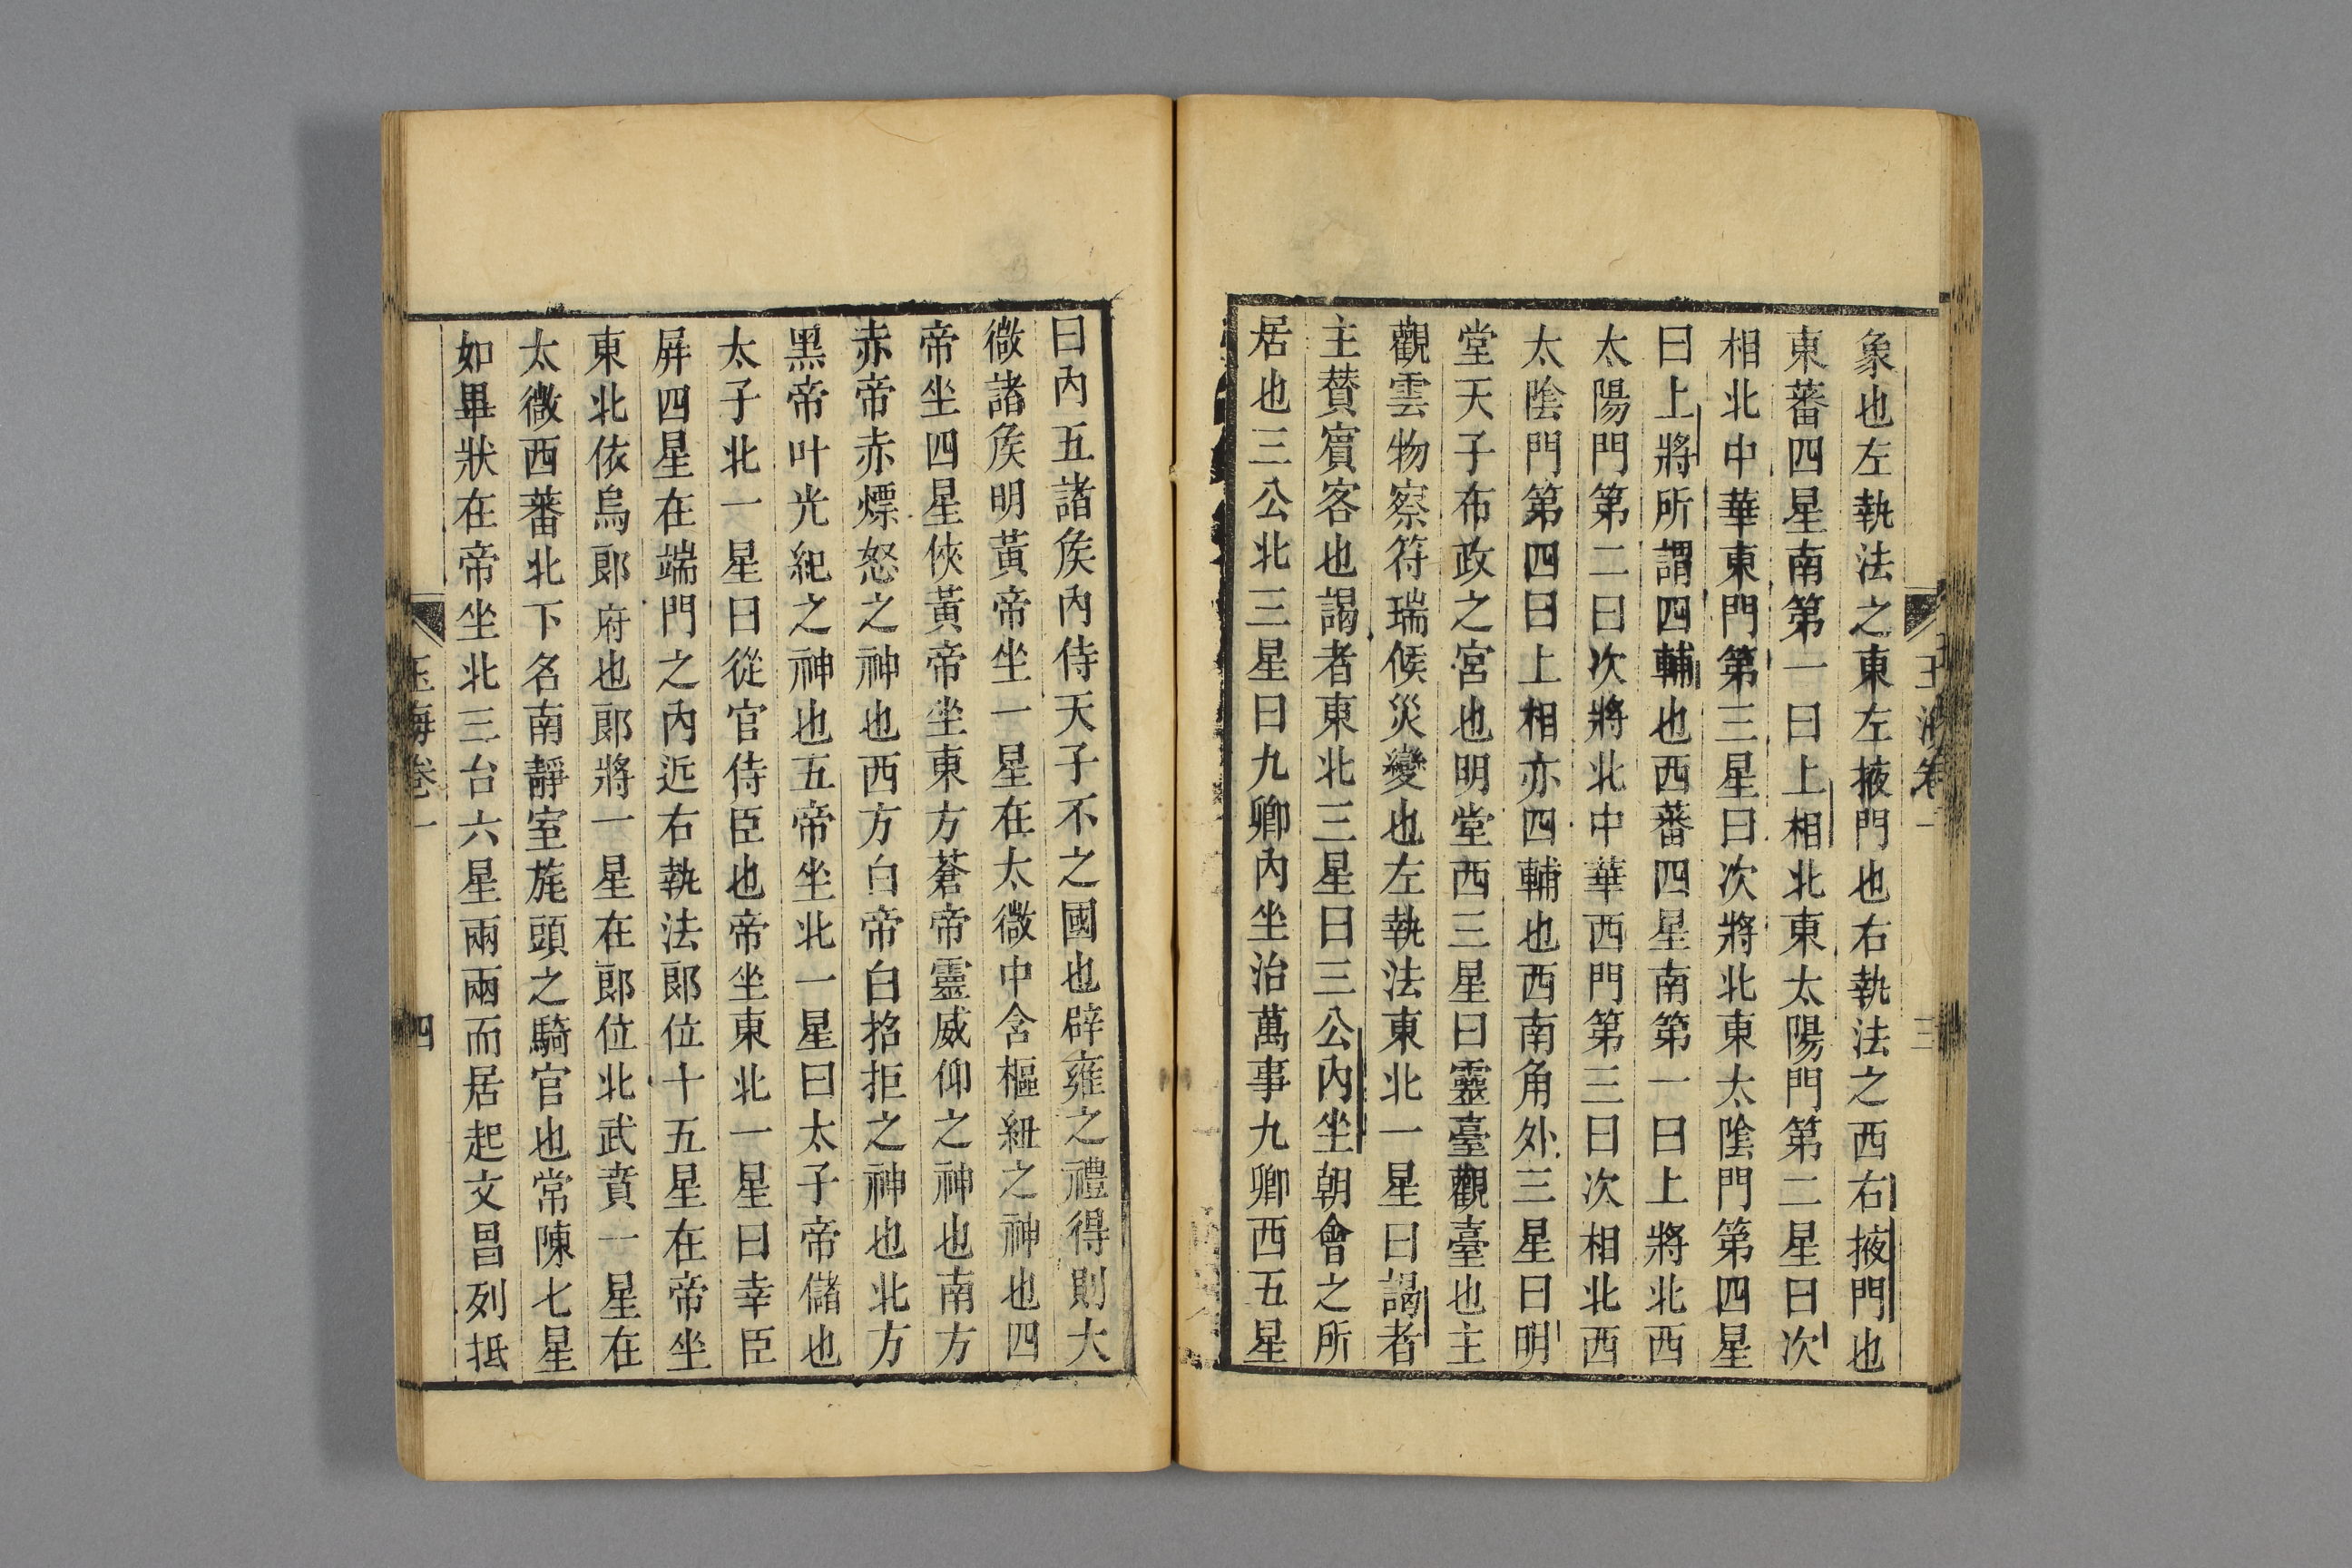 玉海卷一
三
象也左執法之東左掖門也右執法之西右掖門也
東蕃四星南第一曰上相北東太陽門第二星曰次
相北中華東門第三星曰次將北東太陰門第四星
曰上將所謂四輔也西蕃四星南第一曰上將北西
太陽門第二曰次將北中華西門第三曰次相北西
太陰門第四曰上相亦四輔也西南角外三星曰明
堂天子布政之宮也明堂西三星曰靈臺觀臺也主
觀雲物察符瑞候災變也左執法東北一星曰謁者
主賛賔客也謁者東北三星曰三公内坐朝會之所
居也三公北三星曰九卿内坐治萬事九卿西五星
曰内五諸矦内侍天子不之國也辟雍之禮得則大
微諸矦明黃帝坐一星在太微中含樞紐之神也四
帝坐四星俠黃帝坐東方蒼帝靈威仰之神也南方
赤帝赤熛怒之神也西方白帝白招拒之神也北方
黑帝叶光紀之神也五帝坐北一星曰太子帝儲也
太子北一星曰從官侍臣也帝坐東北一星曰幸臣
屏四星在端門之内近右執法郎位十五星在帝坐
東北依烏郎府也郎將一星在郎位北武賁一星在
太微西蕃北下名南靜室旄頭之騎官也常陳七星
如畢狀在帝坐北三台六星兩兩而居起文昌列抵
玉海卷一
四